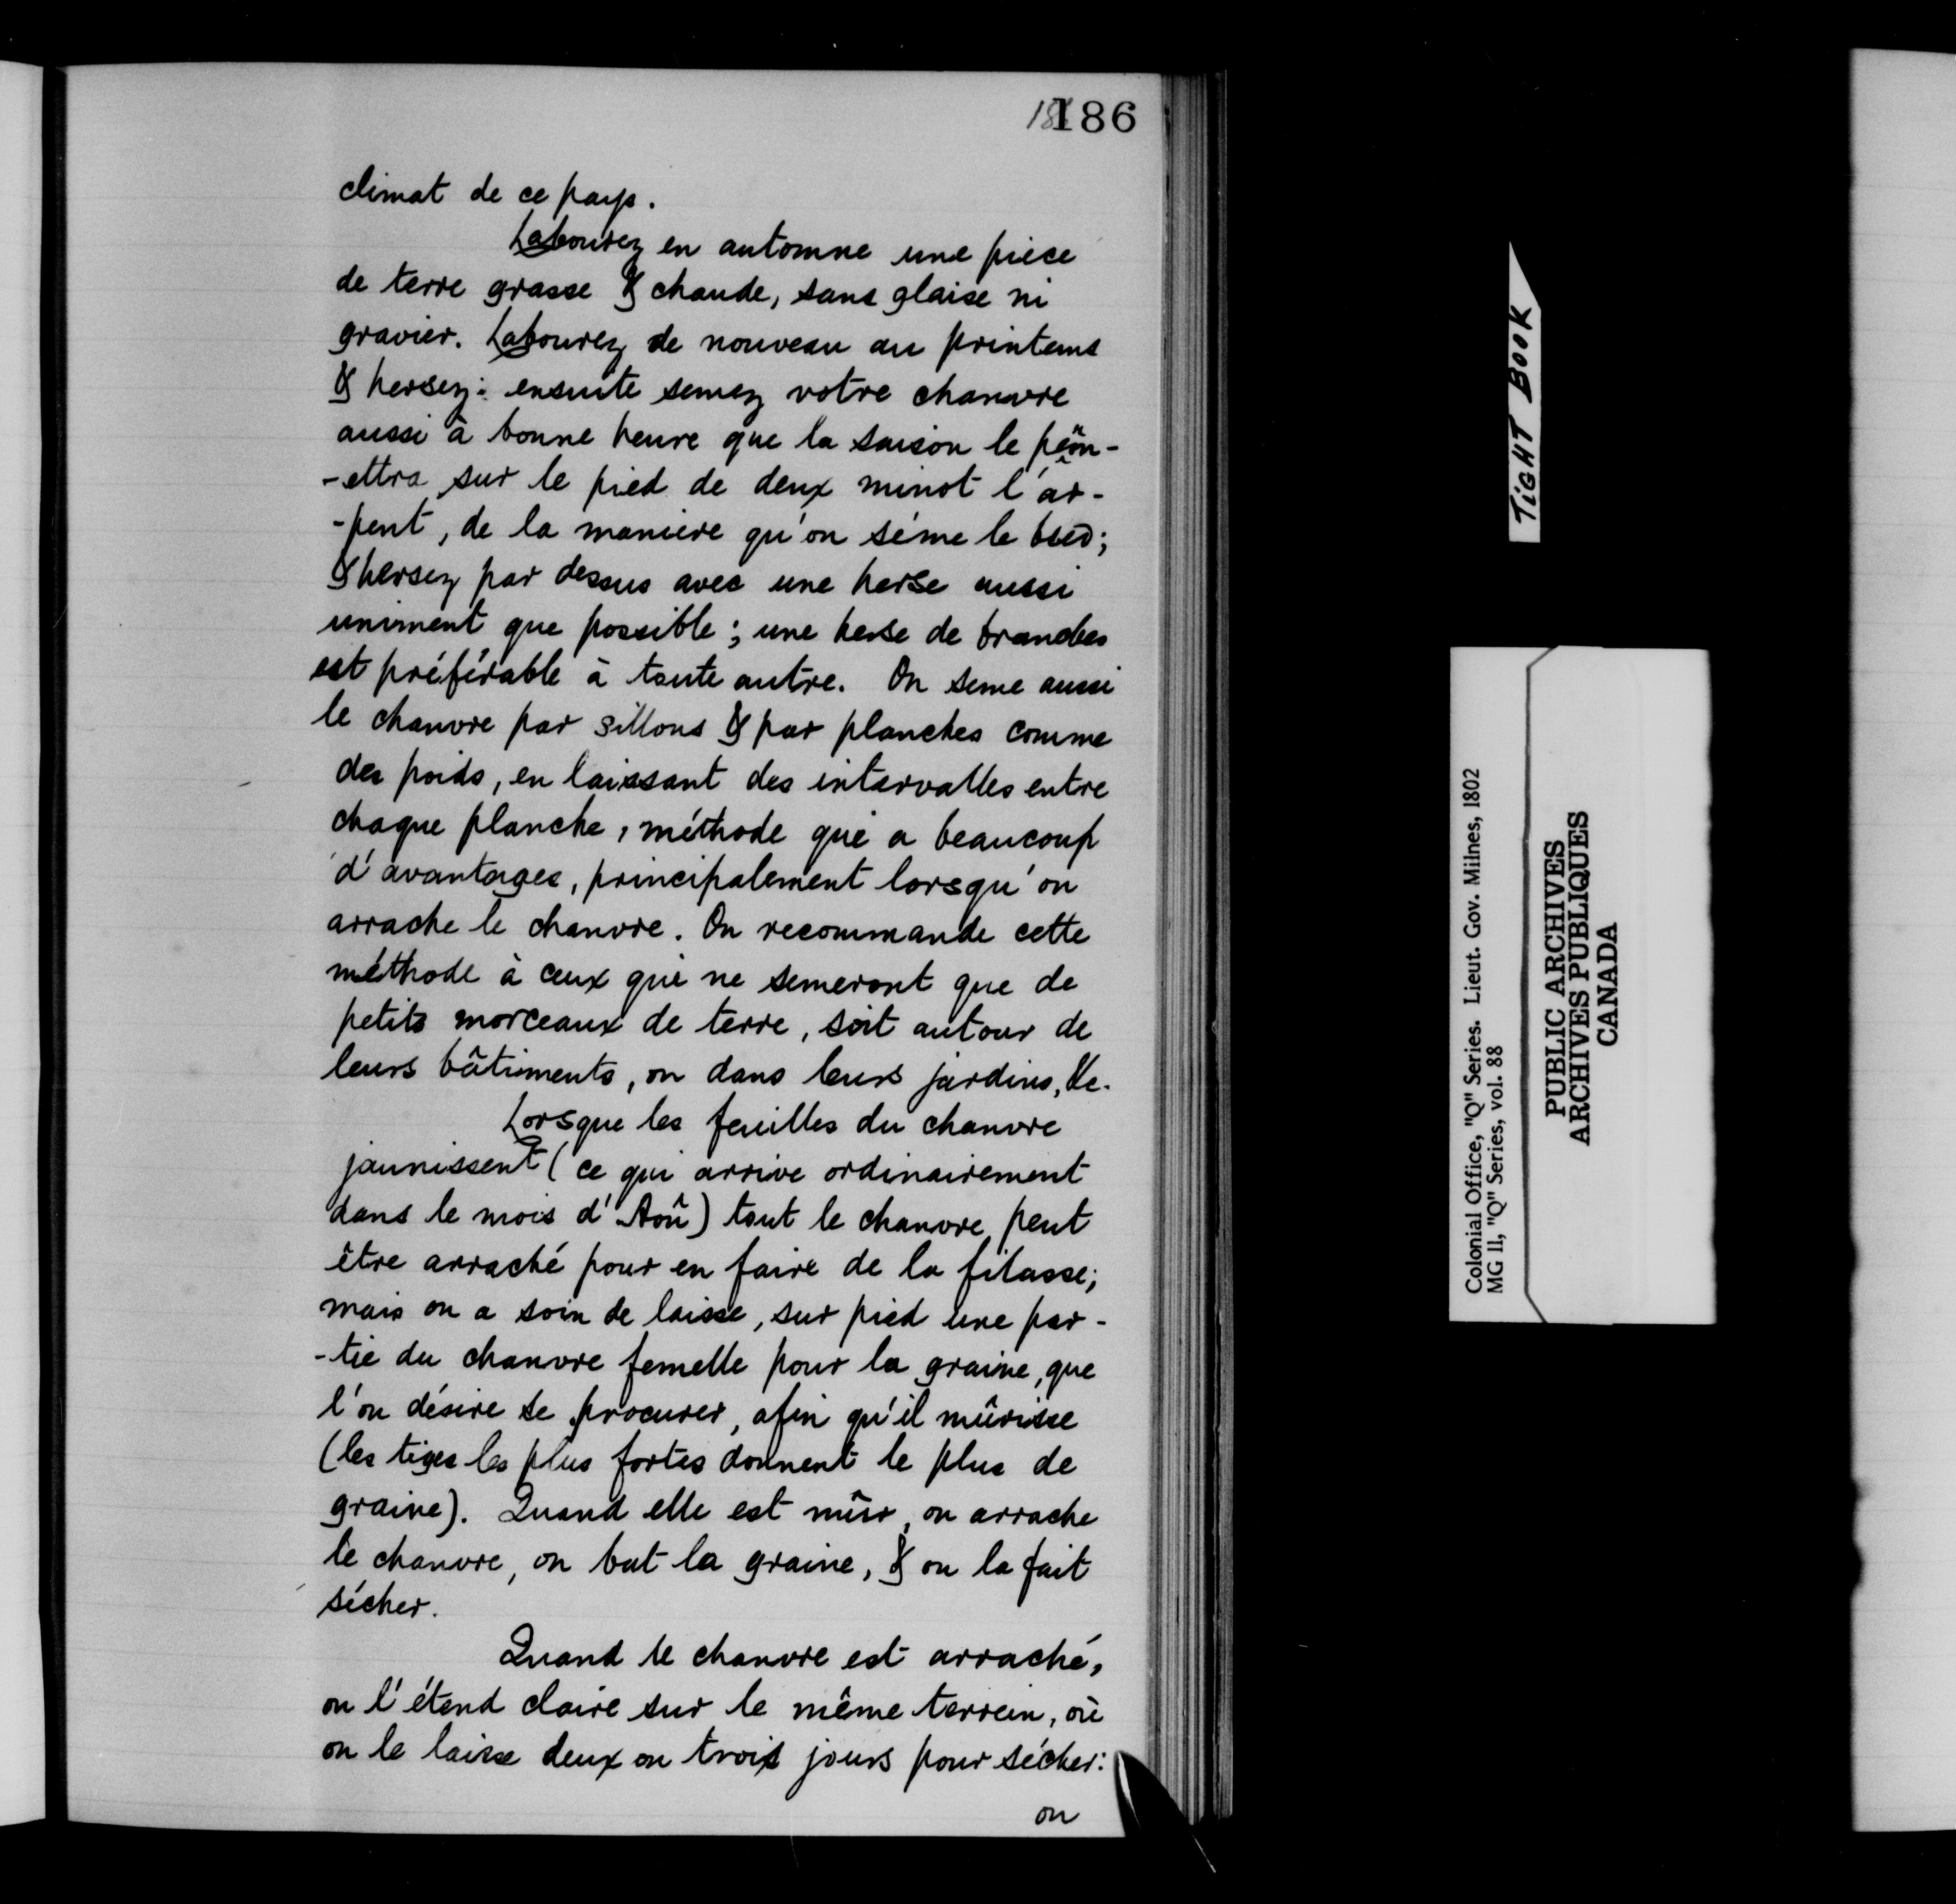 186
climat de ce pays.
Labourez en automne une piece
de terre grasse & chaude, sans glaise ni
gravier. Labourez de nouveau au printems
& hersez: ensuite semez votre chanvre
aussi à bonne heure que la saison le
-ettra, sur le pied de deux minot l'ar-
-pent, de la maniere qu'on séme le bled;
& hersez par dessus avec une herse aussi
uniment que possible; une herse de branches
est préférable à toute autre. On seme aussi
le chanvre par sillons & par planches comme
des poids, en laissant des intervalles entre
chaque planche, méthode qui a beaucoup
d'avantages, principalement lorsqu'on
arrache le chanvre. On recommande cette
méthode à ceux qui ne semeront que de
petits morceaux de terre, soit autour de
leurs bâtiments, ou dans leurs jardins, &c.
Lorsque les feuilles du chanvre
jaunissent (ce qui arrive ordinairement
dans le mois d'Aoû) tout le chanvre peut
être arraché pour en faire de la filasse;
mais on a soin de laisse, sur pied une par-
-tie du chanvre femelle pour la graine, que
l'on désire se procurer, afin qu'il mûrisse
(les tiges les plus fortes donnent le plus de
graine). Quand elle est mûr, on arrache
le chanvre, on bat la graine, & on la fait
sécher.
Quand le chanvre est arraché,
on l'étend claire sur le même terrein, où
on le laisse deux ou trois jours pour sécher:
on
TIGHT BOOK
Colonial Office, "Q" Series. Lieut. Gov. Milnes, 1802
MG 11, "Q" Series, vol. 88
PUBLIC ARCHIVES
ARCHIVES PUBLIQUES
CANADA